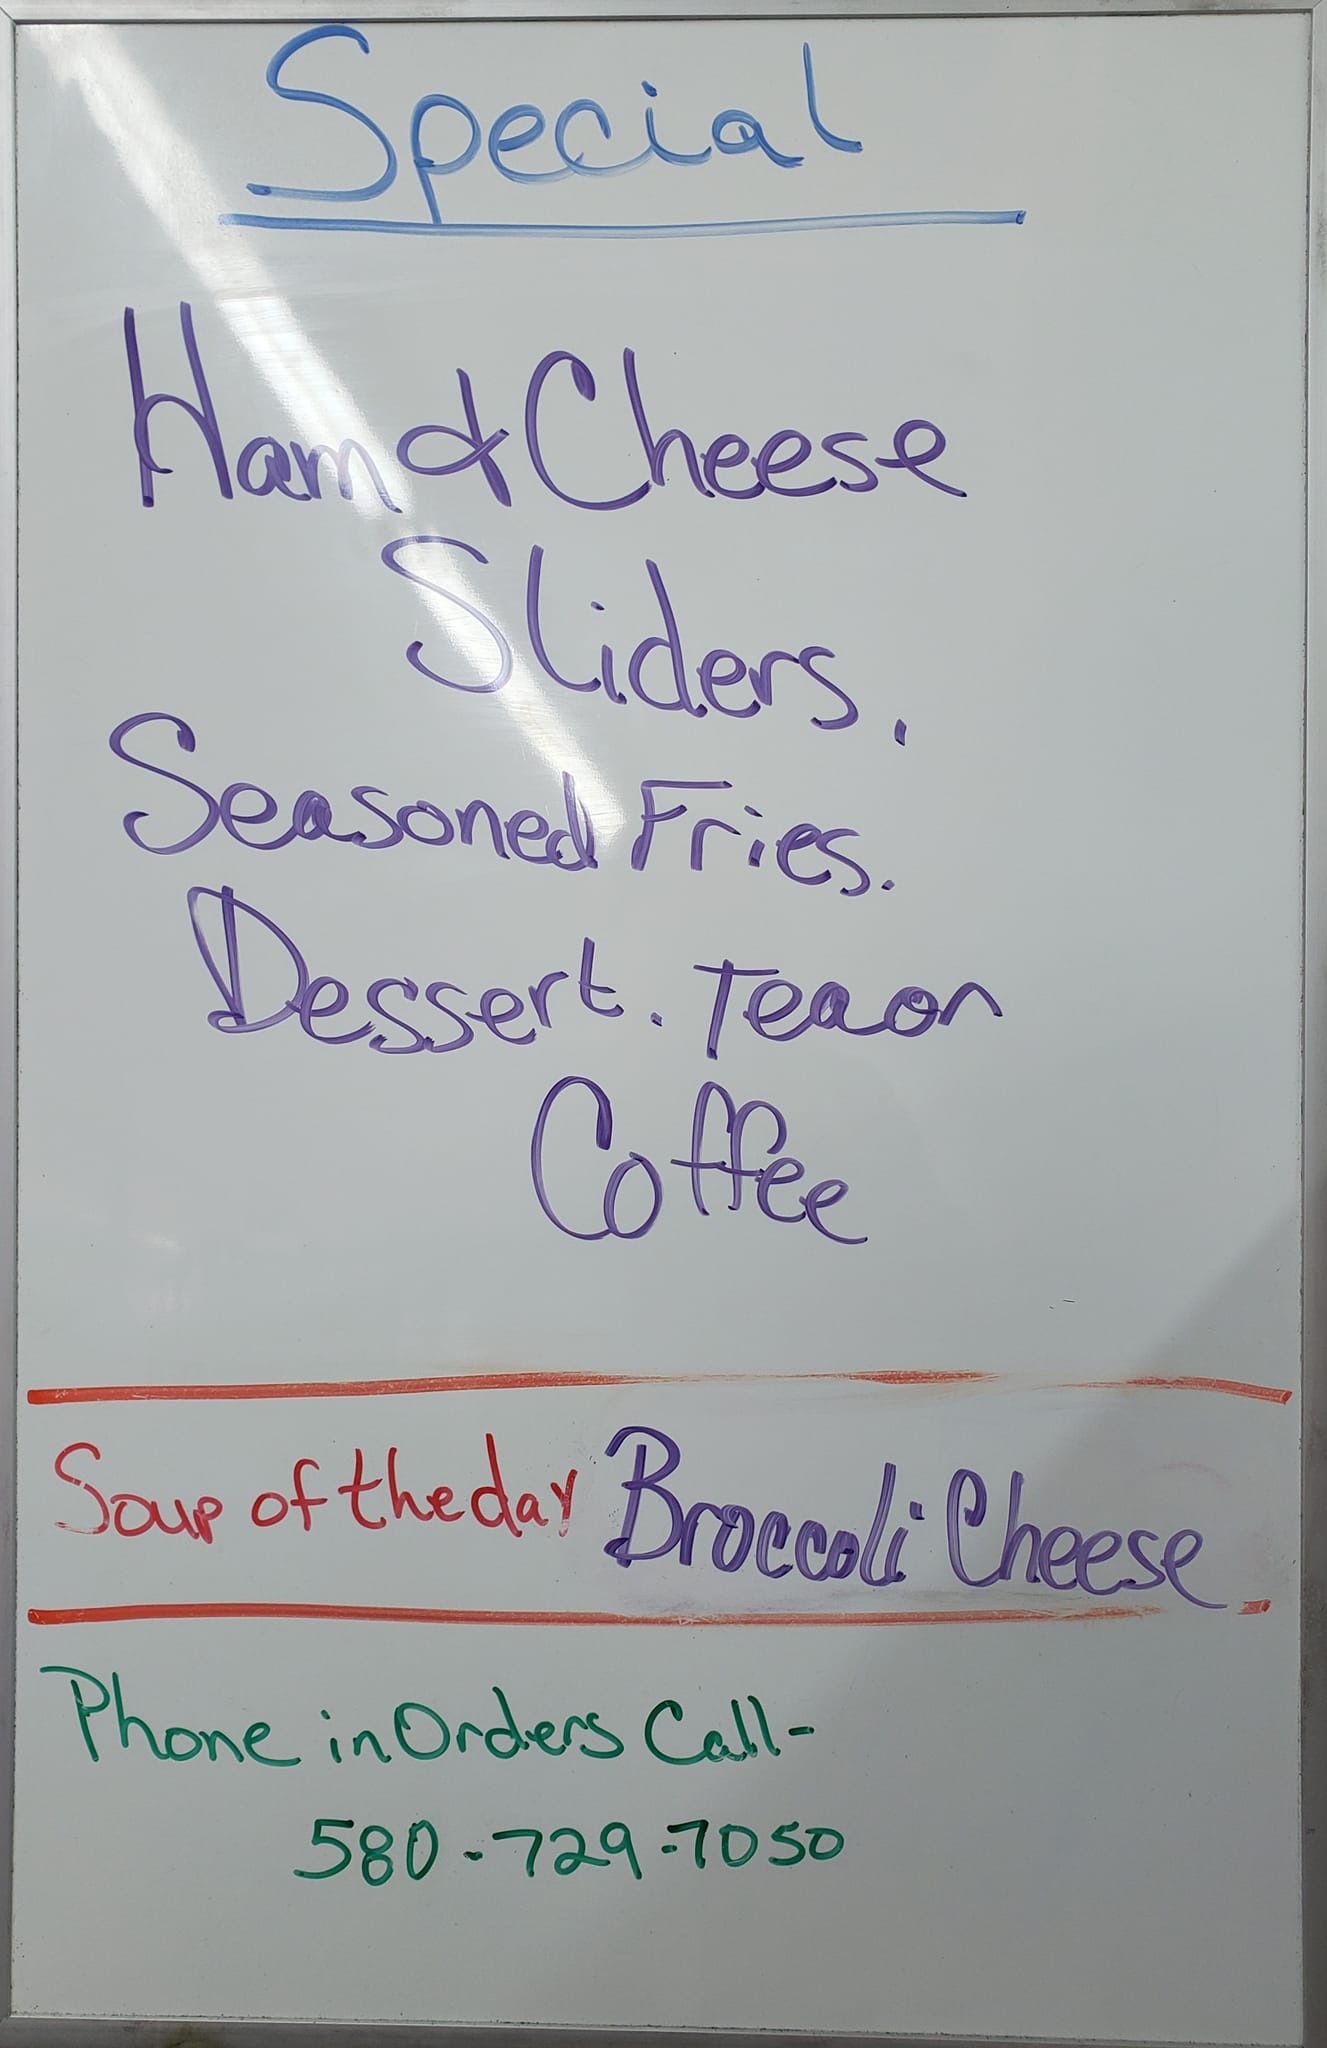 Special
Ham & Cheese
Sliders.
Seasoned Fries.
Dessert. Tea or
Coffee
Soup of the day Broccoli Cheese
Phone in Orders Call-
580-729-7050